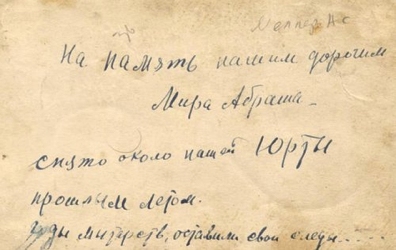 Меллер А с
На память нашим дорогим
Мира Абраша
снято около нашей Юрты
прошлым летом.
оставили свои следы.....